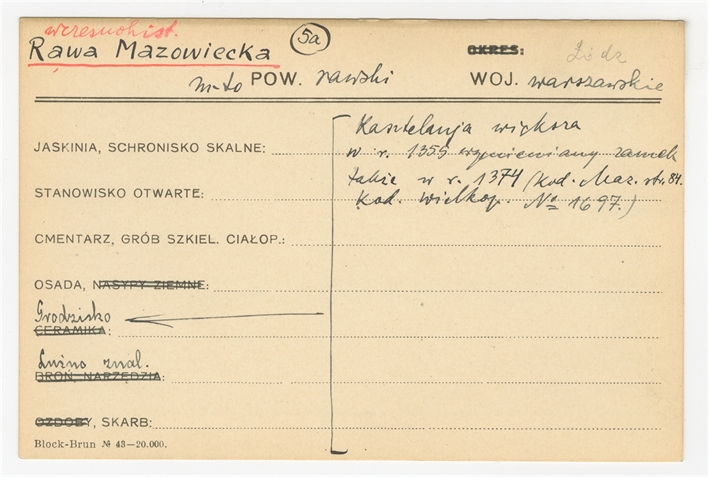 wczesnohist.
Rawa Mazowiecka 5a OKRES: Łódz
m-to POW. rawski WOJ. warszawskie
Kasztelanja większa
JASKINIA, SCHRONISKO SKALNE: w r. 1355 wymieniany zamek
także w r. 1374 (Kod. Maz. str. 84.
STANOWISKO OTWARTE: Kod. Wielkop. № 1697.)
CMENTARZ, GRÓB SZKIEL. CIAŁOP.:
OSADA, NASYPY ZIEMNE:
Grodzisko
CERAMIKA:
Luźno znal.
BROŃ, NARZĘDZIA:
OZDOBY, SKARB:
Block-Brun № 43—20.000.